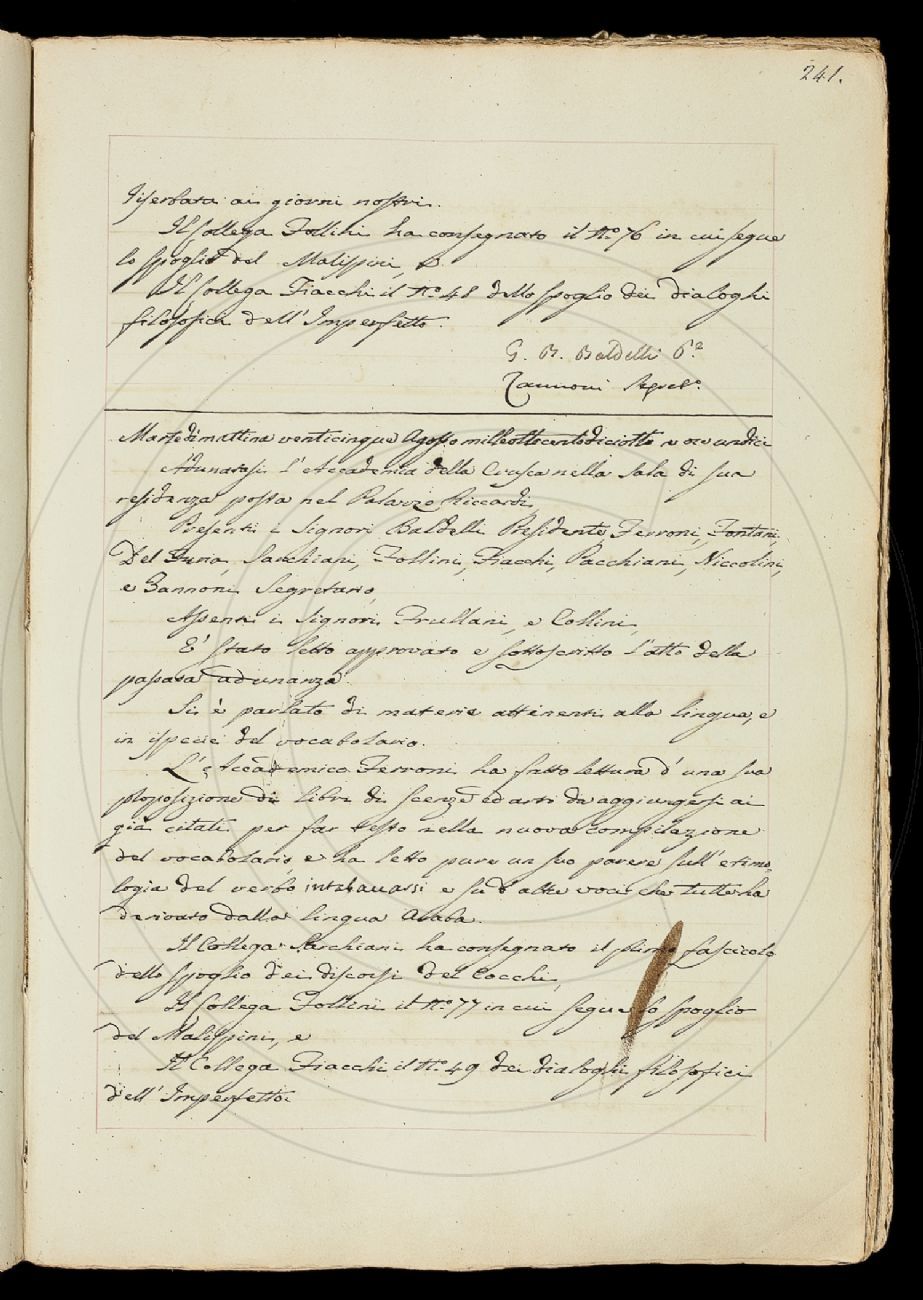 241.
riserbata ai giorni nostri.
Il Collega Follini ha consegnato il N.o 76 in cui segue
lo spoglio del Malispini, e
Il Collega Fiacchi il N.o 48 dello spoglio dei dialoghi
filosofici dell'Imperfetto.
G. B. Baldelli P.e
Zannoni Segret.o
Martedì mattina venticinque Agosto milleottocentodiciotto a ore undici
Adunatasi l'Accademia della Crusca nella Sala di sua
residenza posta nel Palazzo Riccardi,
Presenti i Signori Baldelli Presidente, Ferroni, Fontani,
Del Furia, Sarchiani, Follini, Fiacchi, Pacchiani, Niccolini,
e Zannoni Segretario,
Assenti i Signori Frullani, e Collini,
E' stato letto approvato e sottoscritto l'atto della
passata adunanza.
Si è parlato di materie attinenti alla lingua, e
in ispecie del vocabolario.
L'Accademico Ferroni ha fatto lettura d'una sua
proposizione di libri di scenze ed arti da aggiungersi ai
già citati per far testo nella nuova compilazione
del vocabolario, e ha letto pure un suo parere sull'etimo-
logia del verbo e su d'altre voci che tutte ha
derivato dalla lingua Araba.
Il Collega Sarchiani ha consegnato il primo fascicolo
dello spoglio dei discorsi del Cocchi,
Il Collega Follini il N.o 77 in cui segue lo spoglio
del Malispini, e
Il Collega Fiacchi il N.o 49 dei dialoghi filosofici
dell'Imperfetto.